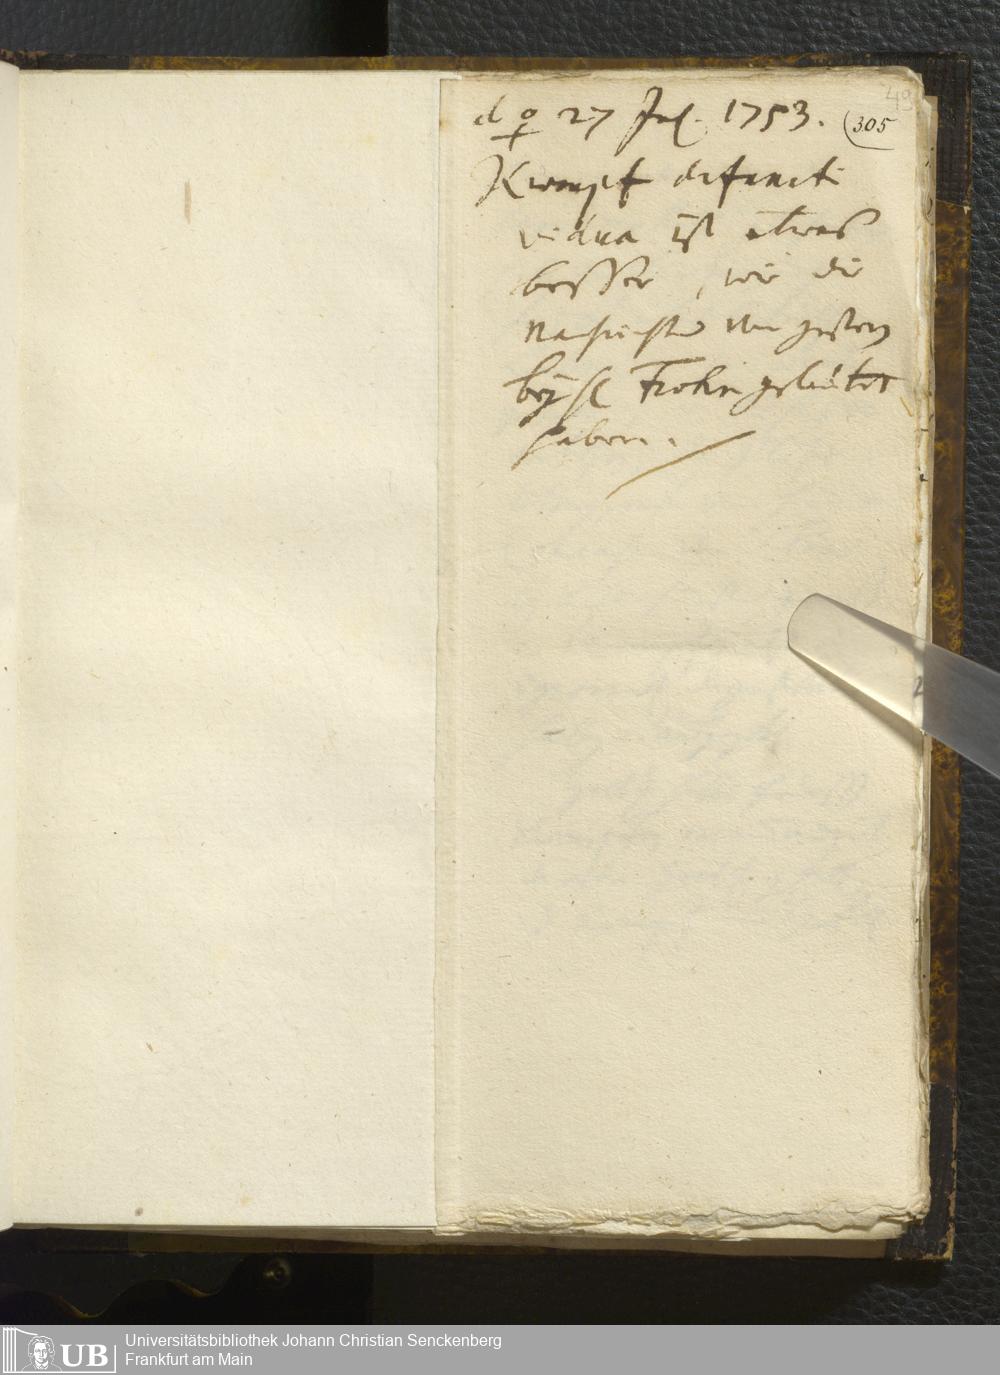 49
d ♀ 27 Jul. 1753. (305
Kempf defuncti
vidua ist etwas
besser, wie die
Nachricht gestern
bey H Frohn gelautet
haben.
UB Universitätsbibliothek Johann Christian Senckenberg
Frankfurt am Main